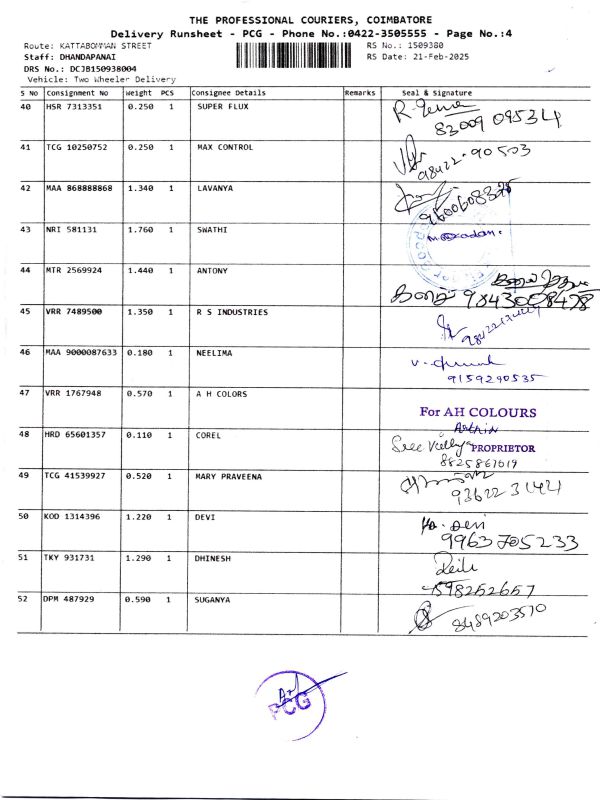 THE PROFESSIONAL COURIERS, COIMBATORE
Delivery Runsheet - PCG - Phone No.:0422-3505555 - Page No.:4
Route: KATTABOMMAN STREET RS No.: 1509380
Staff: DHANDAPANAI RS Date: 21-Feb-2025
DRS No.: DCJB150938004
Vehicle: Two Wheeler Delivery
S No Consignment No Weight PCS Consignee Details Remarks Seal & Signature
40 HSR 7313351 0.250 1 SUPER FLUX
83009 09534
41 TCG 10250752 0.250 1 MAX CONTROL
98422-90503
42 MAA 868888868 1.340 1 LAVANYA
43 NRI 581131 1.760 1 SWATHI
44 MTR 2569924 1.440 1 ANTONY
9843008478
45 VRR 7489500 1.350 1 R S INDUSTRIES
46 MAA 9000087633 0.180 1 NEELIMA
9159290535
47 VRR 1767948 0.570 1 A H COLORS
For AH COLOURS
48 HRD 65601357 0.110 1 COREL
PROPRIETOR
49 TCG 41539927 0.520 1 MARY PRAVEENA
50 KOD 1314396 1.220 1 DEVI
9963705233
51 TKY 931731 1.290 1 DHINESH
52 DPM 487929 0.590 1 SUGANYA
8489203570
PCG